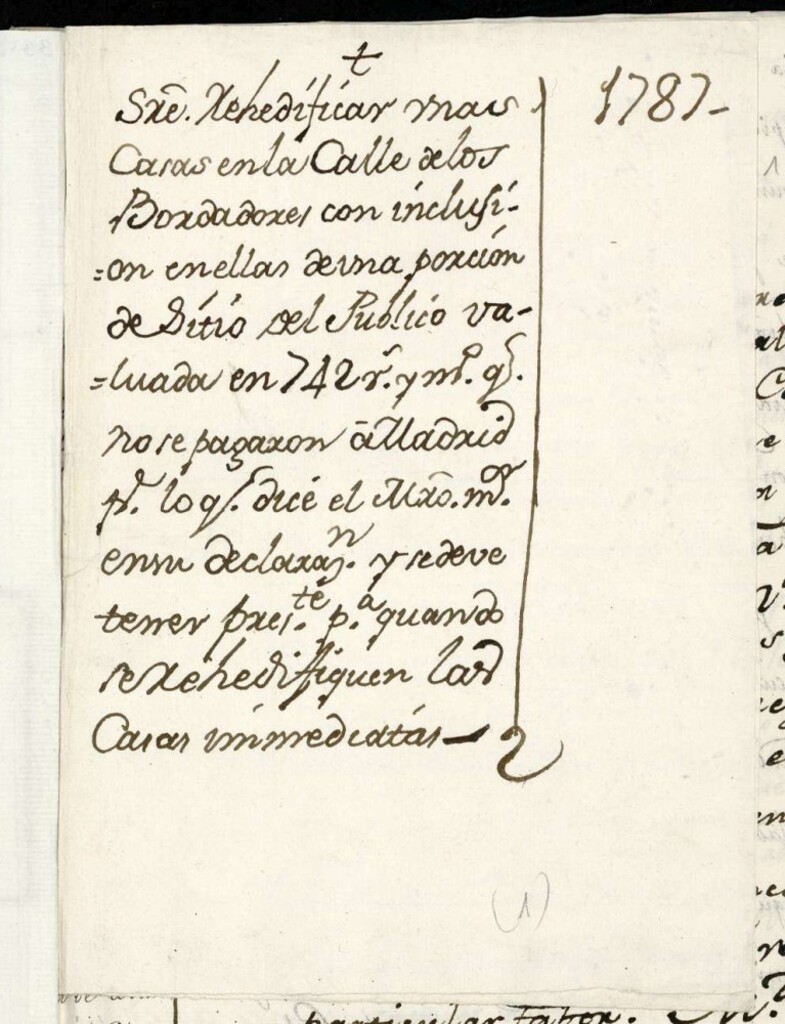 t
Sre. Rehedificar vnas
Casas en la Calle de los
Bordadores con inclusi-
=on en ellas de vna porcion
de Sitio del Publico va-
=luada en 742 rs. y ms. qe.
no se pagaron â Madrid
pr. lo qe. dice el Mro. mor.
en su declaraon. y se deve
tener preste. pa. quando
se Rehedifiquen las
Casas immediatas—
1787-
(1)
particular labor.